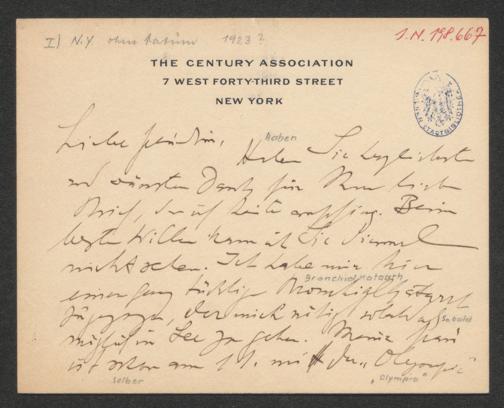 I) N.Y. ohne Datum 1923?
I.N. 198.667
THE CENTURY ASSOCIATION
7 WEST FORTY-THIRD STREET
NEW YORK
WIENER STADTBIBLIOTHEK
Liebe Freundin,
Haben
Haben Sie herzlichsten
und wärmsten Dank für Ihren lieben
Brief, den ich heute empfing. Beim
besten Willen kann ich Sie diesmal
nicht sehen. Ich habe mir hier
Bronchialkatarrh
einen ganz tüchtigen Bronchialkatarrh
zugezogen, der mich nötigt sobald als
Sobald
möglich in See zu gehen. Meine Frau
ist schon am 11. mit der „Olympic"
selber
„Olympic"